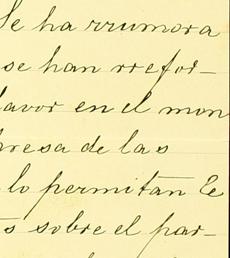 Se ha rrumora
se han rrefor-
favor en el mon
presa de las
lo permitan Te
s sobre el par-